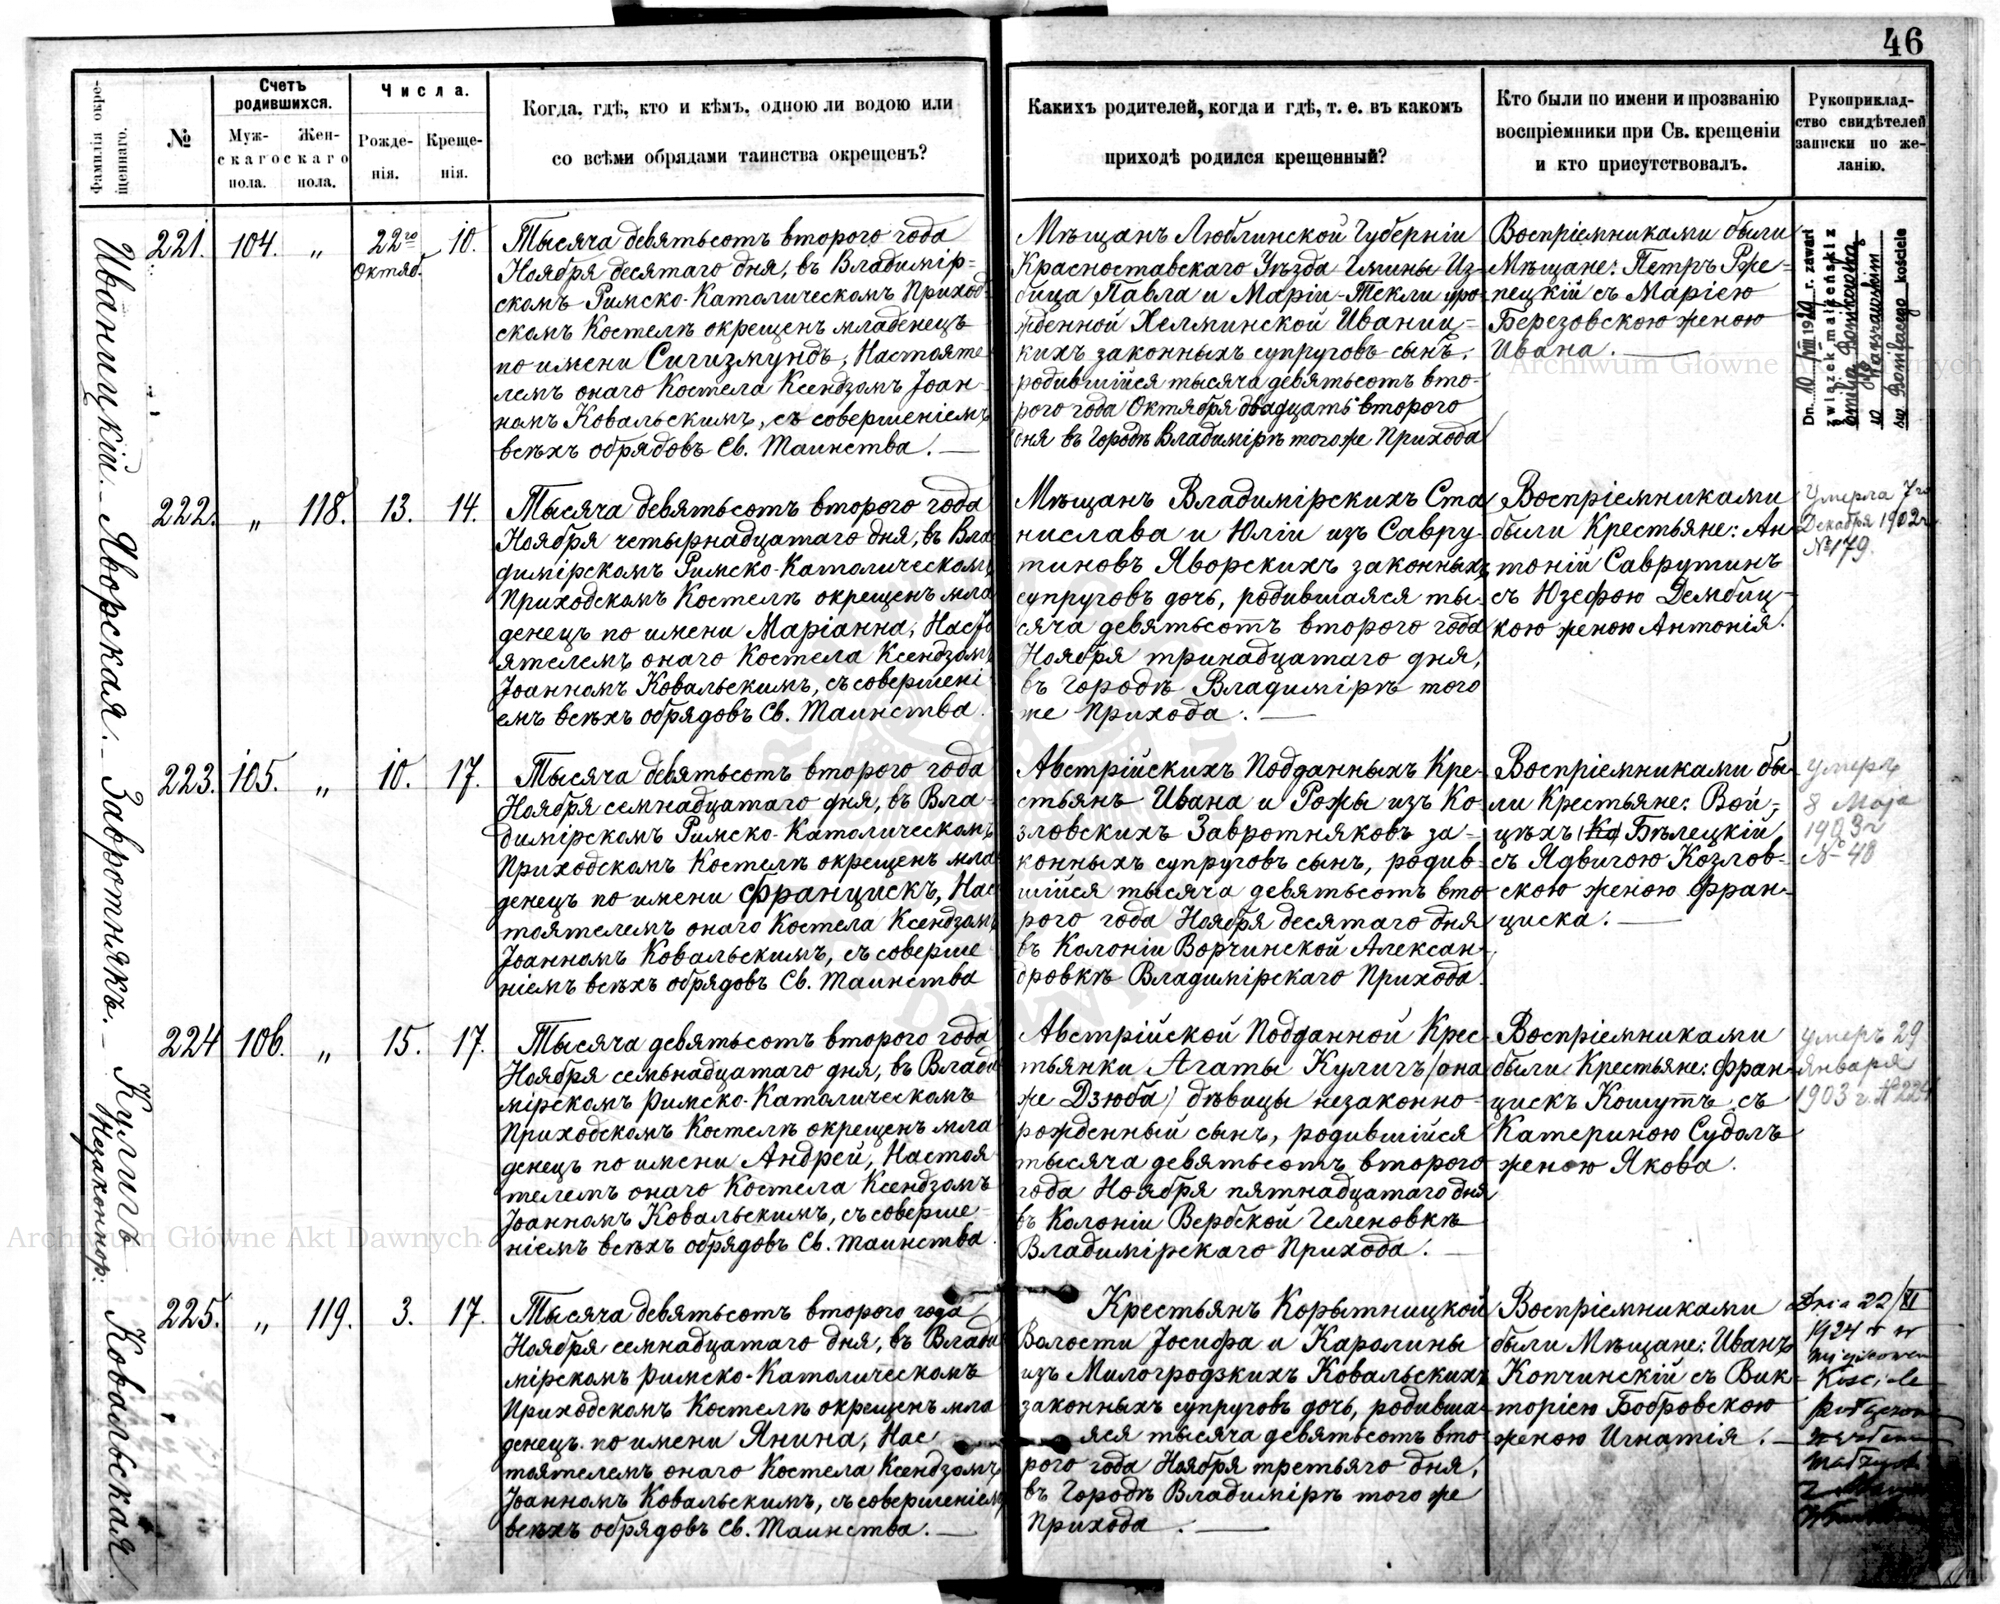 46
Фамилія окре-
щеннаго.
№
Счетъ
родившихся.
Муж-
скаго
пола.
Жен-
скаго
пола.
Числа.
Рожде-
нія.
Креще-
нія.
Когда, гдѣ, кто и кѣмъ, одною ли водою или
со всѣми обрядами таинства окрещенъ?
Какихъ родителей, когда и гдѣ, т. е. въ какомъ
приходѣ родился крещенный?
Кто были по имени и прозванію
воспріемники при Св. крещеніи
и кто присутствовалъ.
Рукоприклад-
ство свидѣтелей
записки по же-
ланію.
Иваницкій.
221. 104. „ 22го Октяб. 10.
Тысяча девятьсотъ второго года
Ноября десятаго дня, въ Владимір-
скомъ Римско-Католическомъ Приход-
скомъ Костелѣ окрещенъ младенецъ
по имени Сигизмундъ, Настояте-
лемъ онаго Костела Ксендзомъ Іоан-
номъ Ковальскимъ, съ совершеніемъ
всѣхъ обрядовъ Св. Таинства.
Мѣщанъ Люблинской Губерніи
Красноставскаго Уѣзда Гмины Из-
бица Павла и Маріи-Текли уро-
жденной Хелминской Иваниц-
кихъ законныхъ супруговъ сынъ,
родившійся тысяча девятьсотъ вто-
рого года Октября двадцать второго
дня въ Городѣ Владимірѣ того же Прихода
Воспріемниками были
Мѣщане: Петръ Рже-
пецкій съ Маріею
Березовскою женою
Ивана.
Dn. 10/VIII 1929 r. zawarł
związek małżeński z
w Warszawskim
św Bonifacego kościele
Яворская.
222. „ 118. 13. 14.
Тысяча девятьсотъ второго года
Ноября четырнадцатаго дня, въ Вла
димірскомъ Римско-Католическомъ
Приходскомъ Костелѣ окрещенъ мла
денецъ по имени Маріанна, Насто
ятелемъ онаго Костела Ксендзомъ
Іоанномъ Ковальскимъ, съ совершені
емъ всѣхъ обрядовъ Св. Таинства.
Мѣщанъ Владимірскихъ Ста
нислава и Юліи изъ Савру-
тиновъ Яворскихъ законныхъ
супруговъ дочь, родившаяся ты-
сяча девятьсотъ второго года
Ноября тринадцатаго дня,
въ Городѣ Владимірѣ того
же Прихода.
Воспріемниками
были Крестьяне: Ан-
тоній Саврутинъ
съ Юзефою Дембиц-
кою женою Антонія.
Умерла 7го
Декабря 1902 г.
№ 179.
Завротнякъ.
223. 105. „ 10. 17.
Тысяча девятьсотъ второго года
Ноября семнадцатаго дня, въ Вла-
димірскомъ Римско-Католическомъ
Приходскомъ Костелѣ окрещенъ мла
денецъ по имени Францискъ, Нас
тоятелемъ онаго Костела Ксендзомъ
Іоанномъ Ковальскимъ, съ соверше
ніемъ всѣхъ обрядовъ Св. Таинства
Австрійскихъ Подданныхъ Кре-
стьянъ Ивана и Рожы изъ Ко-
зловскихъ Завротняковъ за-
конныхъ супруговъ сынъ, родив-
шійся тысяча девятьсотъ вто-
рого года Ноября десятаго дня
въ Колоніи Ворчинской Алексан-
дровкѣ Владимірскаго Прихода.
Воспріемниками бы-
ли Крестьяне: Вой-
цѣхъ (Ко) Бѣлецкій
съ Ядвигою Козлов-
скою женою Фран-
циска.
Умеръ
8 Мaja
1903 г
№ 48
Кулигъ
Незаконнор:
224 106. „ 15. 17.
Тысяча девятьсотъ второго года
Ноября семьнадцатаго дня, въ Влади
мірскомъ Римско-Католическомъ
Приходскомъ Костелѣ окрещенъ мла
денецъ по имени Андрей, Настоя
телемъ онаго Костела Ксендзомъ
Іоанномъ Ковальскимъ, съ соверше-
ніемъ всѣхъ обрядовъ Св. Таинства.
Австрійской Подданной Крес-
тьянки Агаты Кулигъ (она
же Дзюба) дѣвицы незаконно-
рожденный сынъ, родившійся
тысяча девятьсотъ второго
года Ноября пятнадцатаго дня
въ Колоніи Вербской Геленовкѣ
Владимірскаго Прихода.
Воспріемниками
были Крестьяне: Фран-
цискъ Кошутъ съ
Катериною Судолъ
женою Якова.
Умеръ 29
Января
1903 г. № 224
Ковальская.
225. „ 119. 3. 17.
Тысяча девятьсотъ второго года
Ноября семнадцатаго дня, въ Влади
мірскомъ Римско-Католическомъ
Приходскомъ Костелѣ окрещенъ мла
денецъ по имени Янина, Нас
тоятелемъ онаго Костела Ксендзомъ
Іоанномъ Ковальскимъ, съ совершеніемъ
всѣхъ обрядовъ Св. Таинства.
Крестьянъ Корытницкой
Волости Іосифа и Каролины
изъ Милогродзкихъ Ковальскихъ
законныхъ супруговъ дочь, родивша-
яся тысяча девятьсотъ вто-
рого года Ноября третьяго дня,
въ Городѣ Владимірѣ того же
Прихода.
Воспріемниками
были Мѣщане: Иванъ
Копчинскій съ Вик-
торіею Бобровскою
женою Игнатія.
Dnia 22/XI
1924 r w
Kościele
Archiwum Główne Akt Dawnych
Archiwum Główne Akt Dawnych